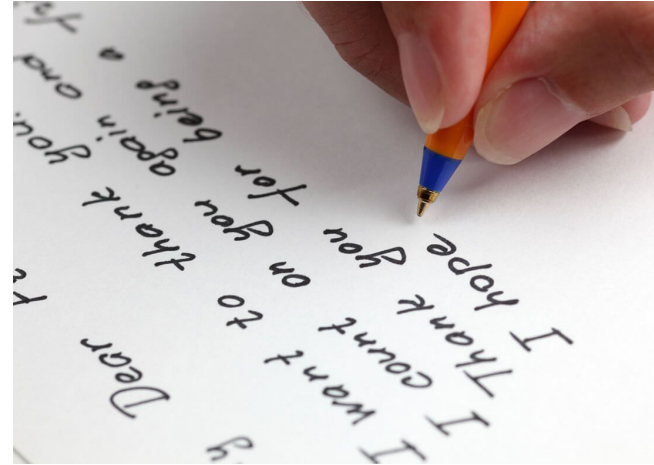 Dear
I want to thank you,
I count on you again and
Thank you for being a
I hope